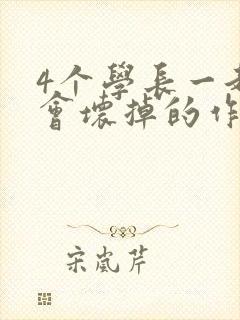 4个學長一
會壞掉的作
宋嵐芹